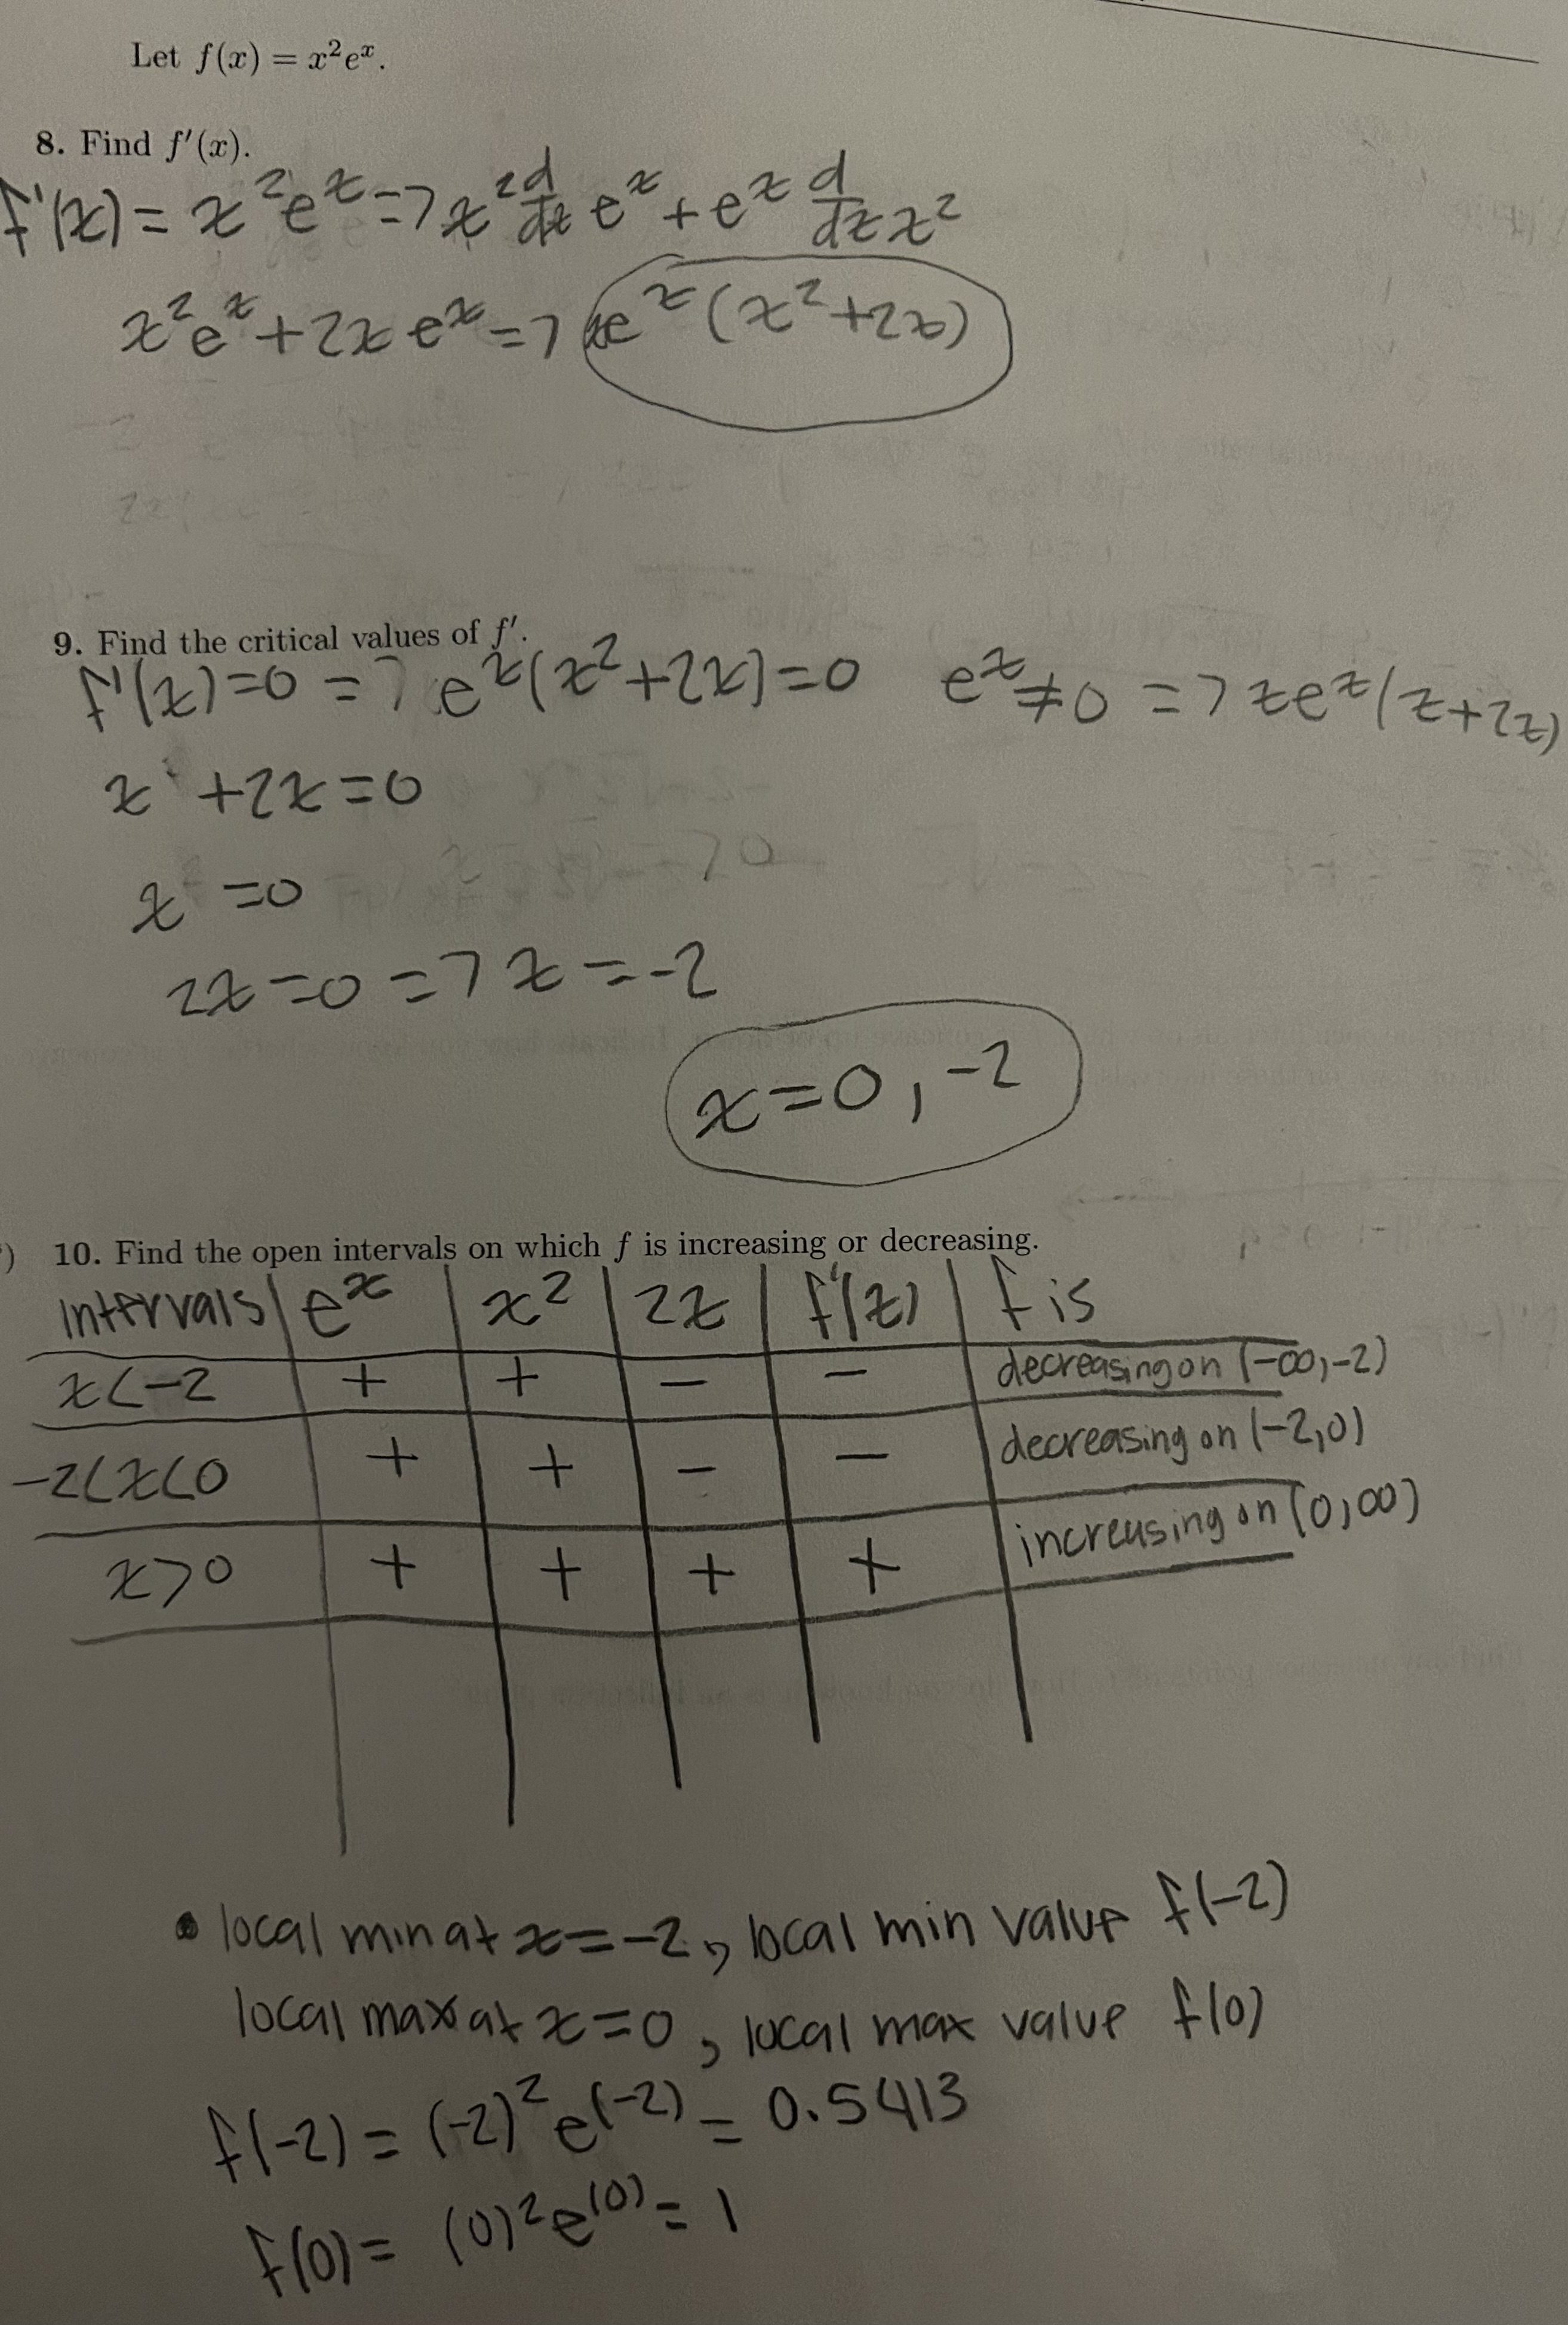 Let f(x) = x²eˣ.
8. Find f′(x).
f'(x) = x²eˣ => x² d/dx eˣ + eˣ d/dx x²
x²eˣ + 2x eˣ => eˣ(x²+2x)
9. Find the critical values of f′.
f'(x)=0 => eˣ(x²+2x)=0 eˣ≠0 => xeˣ(x+2x)
x +2x=0
x =0
2x=0 => x=-2
x=0, -2
10. Find the open intervals on which f is increasing or decreasing.
intervals | eˣ | x² | 2x | f'(x) | f is
x<-2 + + - - decreasing on (-∞,-2)
-2<x<0 + + - - decreasing on (-2,0)
x>0 + + + + increasing on (0,∞)
• local min at x=-2, local min value f(-2)
local max at x=0, local max value f(0)
f(-2) = (-2)²e^(-2) = 0.5413
f(0) = (0)²e^(0) = 1